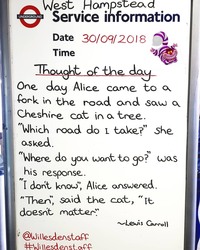 West Hampstead
UNDERGROUND
Service information
Date 30/09/2018
Time
Thought of the day
One day Alice came to a
fork in the road and saw a
Cheshire cat in a tree.
"Which road do I take?" she
asked.
"Where do you want to go?" was
his response.
"I don't know", Alice answered.
"Then", said the cat, "it
doesn't matter."
~Lewis Carroll
@Willesdenstaff
#Willesdenstaff